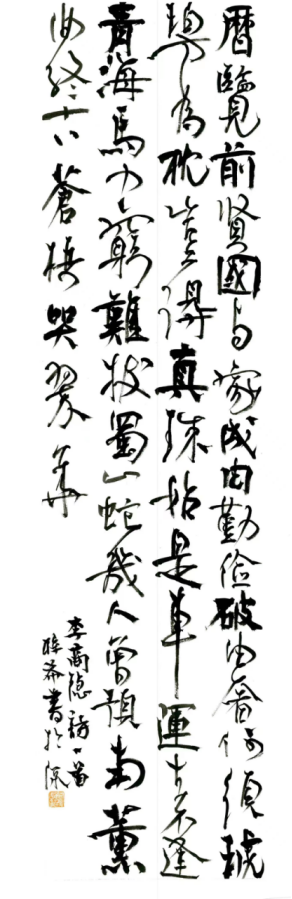 曆覽前賢國与家成由勤俭破由奢何須琥
珀方為枕豈得真珠始是車運去不逢
青海馬力窮難拔蜀山蛇幾人曾預南薰
曲終古蒼梧哭翠華
李商隐詩一首
書於